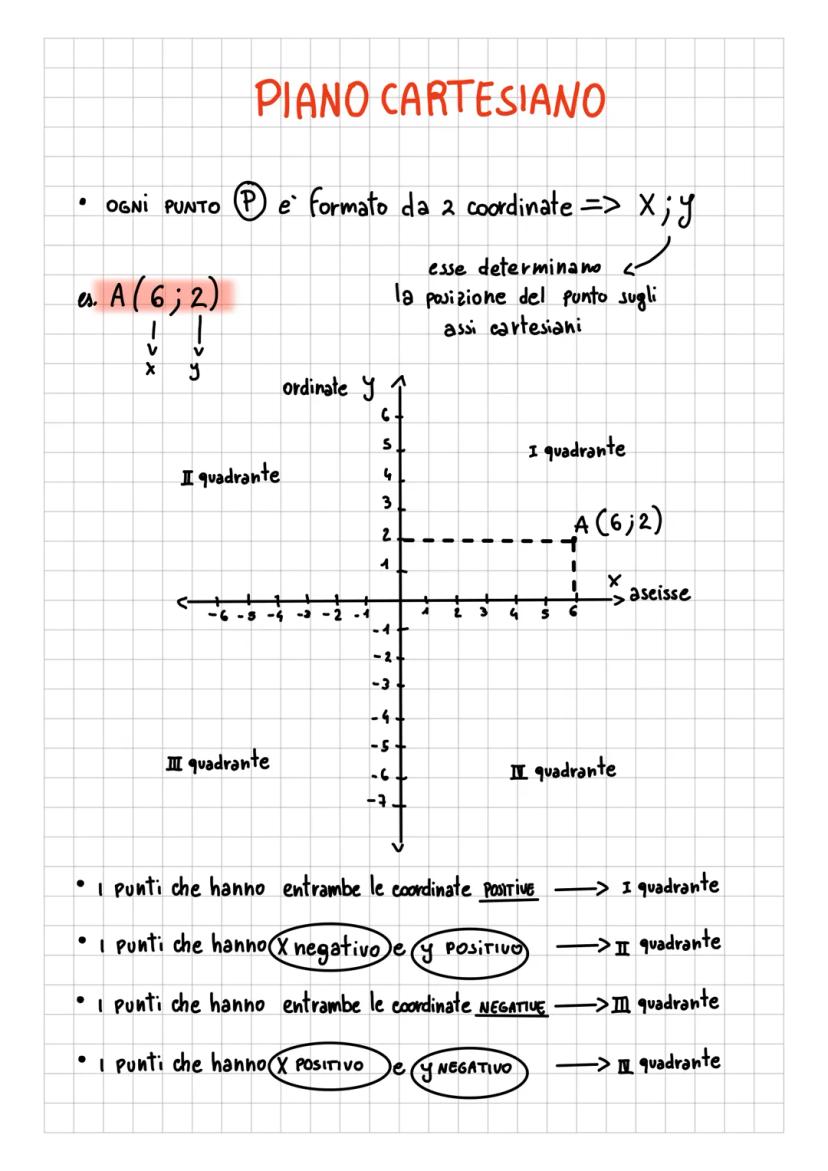 PIANO CARTESIANO
• OGNI PUNTO P e' formato da 2 coordinate => X;y
esse determinano
la posizione del punto sugli
assi cartesiani
es. A(6;2)
x y
ordinate y
6
5
4
3
2
1
I quadrante
II quadrante
A(6;2)
x
ascisse
-6 -5 -4 -3 -2 -1 1 2 3 4 5 6
-1
-2
-3
-4
-5
-6
-7
III quadrante
IV quadrante
• I punti che hanno entrambe le coordinate POSITIVE → I quadrante
• I punti che hanno X negativo e y POSITIVO → II quadrante
• I punti che hanno entrambe le coordinate NEGATIVE → III quadrante
• I punti che hanno X POSITIVO e y NEGATIVO → IV quadrante